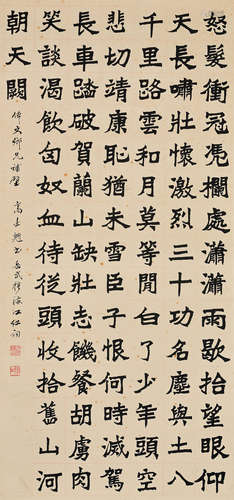 怒髮衝冠凴欄處瀟瀟雨歇抬望眼仰
天長嘯壯懷激烈三十功名塵與土八
千里路雲和月莫等閒白了少年頭空
悲切靖康恥猶未雪臣子恨何時滅駕
長車踏破賀蘭山缺壯志饑餐胡虜肉
笑談渴飲匈奴血待從頭收拾舊山河
朝天闕
鄉兄補壁 書岳武穆滿江紅詞